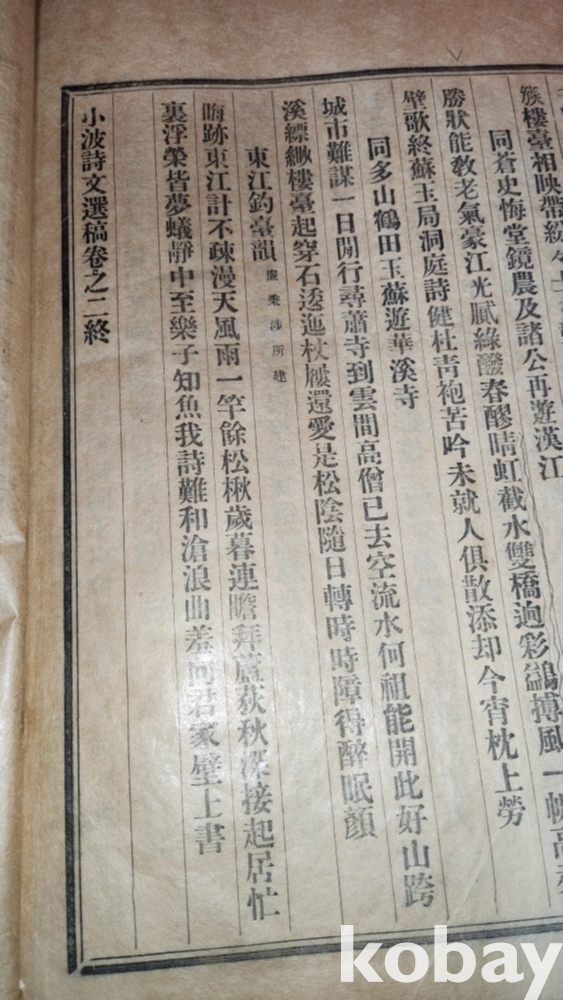 簇樓臺相映帶紛々
同蒼史悔堂鏡農及諸公再遊漢江
勝狀能敎老氣豪江光膩綠醱春醪晴虹截水雙橋逈彩鷁搏風一帆高赤
壁歌終蘇玉局洞庭詩健杜靑袍苦吟未就人俱散添却今宵枕上勞
同多山鶴田玉蘇遊華溪寺
城市難謀一日閒行尋蕭寺到雲間高僧已去空流水何祖能開此好山跨
溪縹緲樓臺起穿石透迤杖屨還愛是松陰隨日轉時時障得醉眠顔
東江釣臺韻 秉涉所建
晦跡東江計不疎漫天風雨一竿餘松楸歲暮連瞻拜蘆荻秋深接起居忙
裏浮榮皆夢蟻靜中至樂子知魚我詩難和滄浪曲羞向君家壁上書
小波詩文選稿卷之二終
kobay